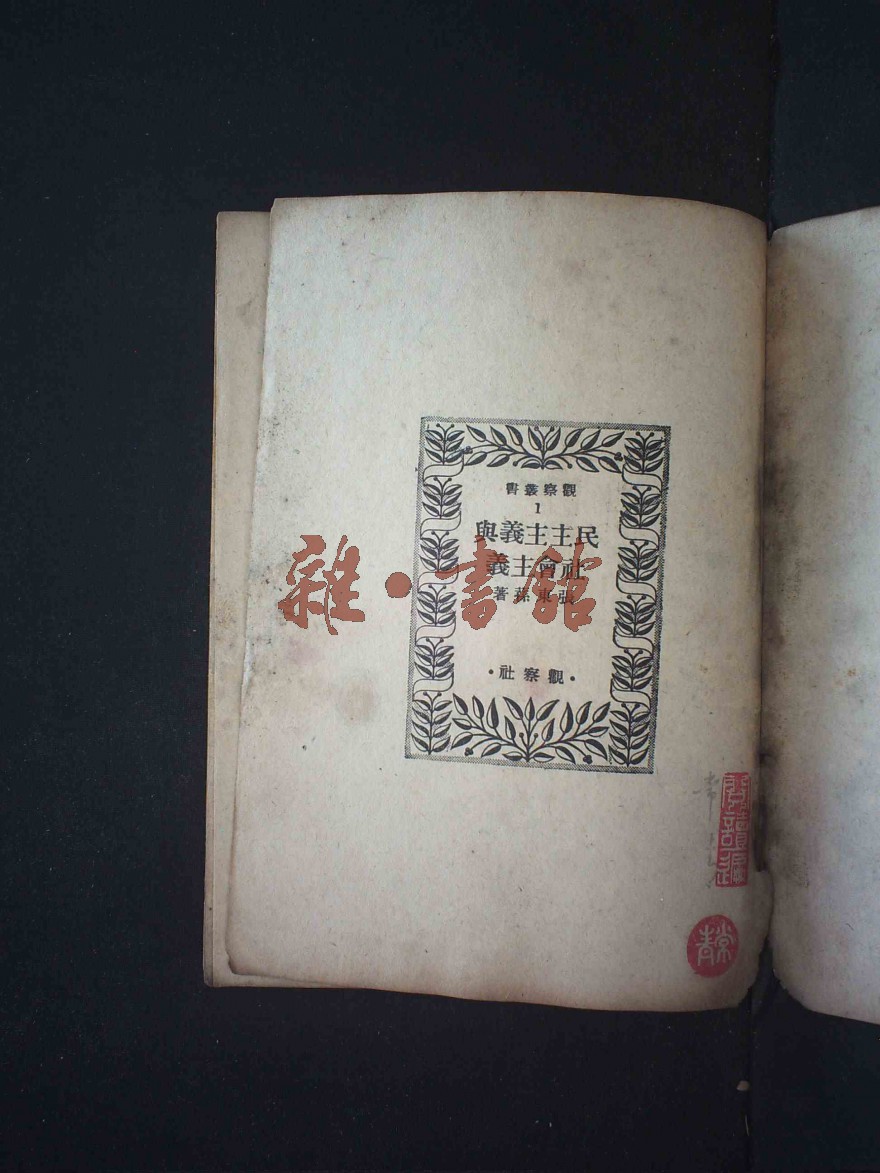 觀察叢書
1
民主主義與
社會主義
張東蓀著
·觀察社·
雜·書館
常青